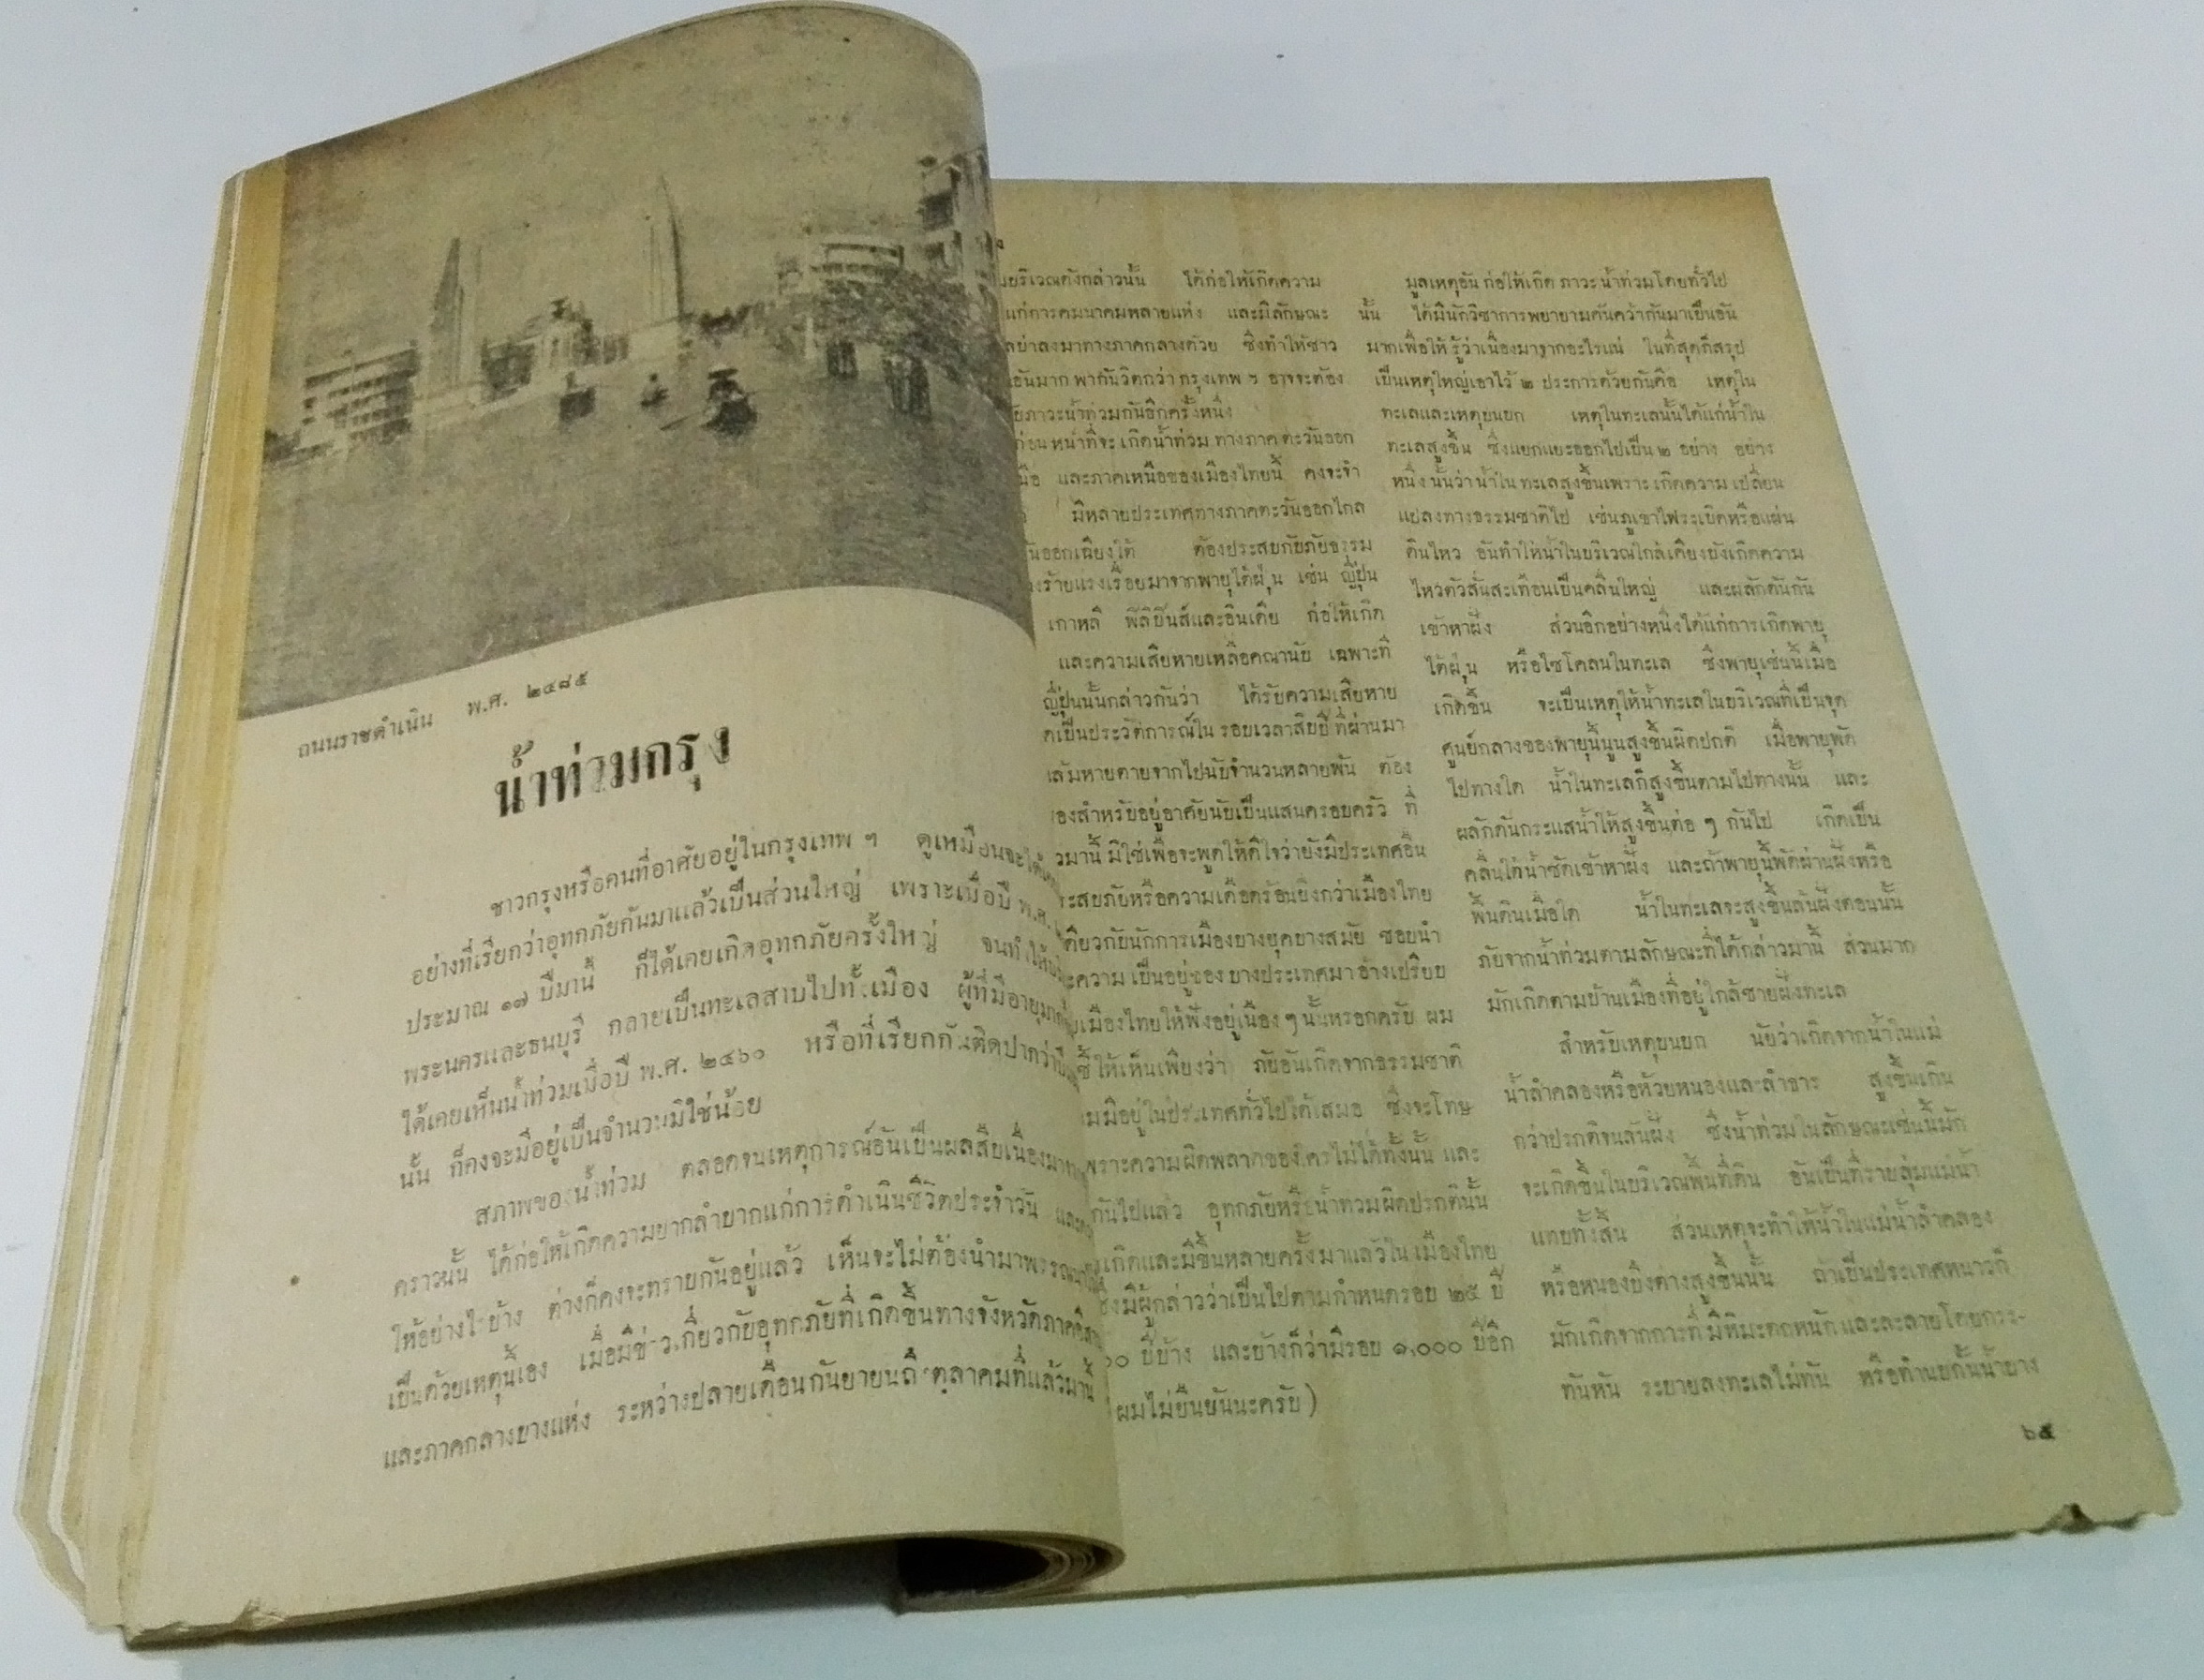 ถนนราชดำเนิน พ.ศ. ๒๔๘๕
น้ำท่วมกรุง
ชาวกรุงหรือคนที่อาศัยอยู่ในกรุงเทพ ฯ ดูเหมือนจะได้
อย่างที่เรียกว่าอุทกภัยกันมาแล้วเป็นส่วนใหญ่ เพราะเมื่อปี พ.ศ.
ประมาณ ๑๗ ปีมานี้ ก็ได้เคยเกิดอุทกภัยครั้งใหญ่ จนทำให้
พระนครและธนบุรี กลายเป็นทะเลสาบไปทั้งเมือง ผู้ที่มีอายุมาก
ได้เคยเห็นน้ำท่วมเมื่อปี พ.ศ. ๒๔๖๐ หรือที่เรียกกันติดปากว่าปี
นั้น ก็คงจะมีอยู่เป็นจำนวนมิใช่น้อย
สภาพของน้ำท่วม ตลอดจนเหตุการณ์อันเป็นผลสืบเนื่องมา
คราวนั้น ได้ก่อให้เกิดความยากลำบากแก่การดำเนินชีวิตประจำวัน และ
ให้อย่างไรบ้าง ต่างก็คงจะทราบกันอยู่แล้ว เห็นจะไม่ต้องนำมาพรรณนา
เป็นด้วยเหตุนี้เอง เมื่อมีข่าวเกี่ยวกับอุทกภัยที่เกิดขึ้นทางจังหวัดภาค
และภาคกลางบางแห่ง ระหว่างปลายเดือนกันยายนถึงตุลาคมที่แล้วมานี้
บริเวณดังกล่าวนั้น ได้ก่อให้เกิดความ
แก่การคมนาคมหลายแห่ง และมีลักษณะ
ลงมาทางภาคกลางด้วย ซึ่งทำให้ชาว
อันมาก พากันวิตกว่า กรุงเทพ ฯ อาจจะต้อง
ภาวะน้ำท่วมกันอีกครั้งหนึ่ง
ก่อนหน้าที่จะ เกิดน้ำท่วม ทางภาค ตะวันออก
และภาคเหนือของเมืองไทยนี้ คงจะจำ
มีหลายประเทศทางภาคตะวันออกไกล
ออกเฉียงใต้ ต้องประสบกับภัยธรรม
ร้ายแรงเรื่อยมาจากพายุไต้ฝุ่น เช่น ญี่ปุ่น
เกาหลี ฟิลิปปินส์และอินเดีย ก่อให้เกิด
และความเสียหายเหลือคณานับ เฉพาะที่
ญี่ปุ่นนั้นกล่าวกันว่า ได้รับความเสียหาย
เป็นประวัติการณ์ใน รอบเวลาสิบปี ที่ผ่านมา
ล้มหายตายจากไปนับจำนวนหลายพัน ต้อง
สำหรับอยู่อาศัยนับเป็นแสนครอบครัว ที่
มานี้ มิใช่เพื่อจะพูดให้ดีใจว่ายังมีประเทศอื่น
ภัยหรือความเดือดร้อนยิ่งกว่าเมืองไทย
เดียวกับนักการเมืองบางยุคบางสมัย ชอบนำ
ความ เป็นอยู่ของ บางประเทศมา อ้างเปรียบ
เมืองไทยให้ฟังอยู่เนือง ๆ นั้นหรอกครับ ผม
ชี้ให้เห็นเพียงว่า ภัยอันเกิดจากธรรมชาติ
มีอยู่ในประเทศทั่วไปได้เสมอ ซึ่งจะโทษ
เพราะความผิดพลาดของใครไม่ได้ทั้งนั้น และ
กันไปแล้ว อุทกภัยหรือน้ำท่วมผิดปรกตินั้น
เกิดและมีขึ้นหลายครั้งมาแล้วใน เมืองไทย
ซึ่งมีผู้กล่าวว่าเป็นไปตามกำหนดรอบ ๒๕ ปี
ปีบ้าง และบ้างก็ว่ามีรอบ ๑,๐๐๐ ปีอีก
ผมไม่ยืนยันนะครับ )
มูลเหตุอัน ก่อให้เกิด ภาวะ น้ำท่วมโดยทั่วไป
นั้น ได้มีนักวิชาการพยายามค้นคว้ากันมาเป็นอัน
มากเพื่อให้ รู้ว่าเนื่องมาจากอะไรแน่ ในที่สุดก็สรุป
เป็นเหตุใหญ่เอาไว้ ๒ ประการด้วยกันคือ เหตุใน
ทะเลและเหตุบนบก เหตุในทะเลนั้นได้แก่น้ำใน
ทะเลสูงขึ้น ซึ่งแยกแยะออกไปเป็น ๒ อย่าง อย่าง
หนึ่ง นั้นว่า น้ำใน ทะเลสูงขึ้นเพราะ เกิดความ เปลี่ยน
แปลงทางธรรมชาติไป เช่นภูเขาไฟระเบิดหรือแผ่น
ดินไหว อันทำให้น้ำในบริเวณใกล้เคียงยังเกิดความ
ไหวตัวสั่นสะเทือนเป็นคลื่นใหญ่ และผลักดันกัน
เข้าหาฝั่ง ส่วนอีกอย่างหนึ่งได้แก่การเกิดพายุ
ไต้ฝุ่น หรือไซโคลนในทะเล ซึ่งพายุเช่นนี้เมื่อ
เกิดขึ้น จะเป็นเหตุให้น้ำทะเลในบริเวณที่เป็นจุด
ศูนย์กลางของพายุนี้นูนสูงขึ้นผิดปกติ เมื่อพายุพัด
ไปทางใด น้ำในทะเลก็สูงขึ้นตามไปทางนั้น และ
ผลักดันกระแสน้ำให้สูงขึ้นต่อ ๆ กันไป เกิดเป็น
คลื่นใต้น้ำซัดเข้าหาฝั่ง และถ้าพายุนี้พัดผ่านฝั่งหรือ
พื้นดินเมื่อใด น้ำในทะเลจะสูงขึ้นล้นฝั่งตอนนั้น
ภัยจากน้ำท่วมตามลักษณะที่ได้กล่าวมานี้ ส่วนมาก
มักเกิดตามบ้านเมืองที่อยู่ใกล้ชายฝั่งทะเล
สำหรับเหตุบนบก นับว่าเกิดจากน้ำในแม่
น้ำลำคลองหรือห้วยหนองและลำธาร สูงขึ้นเกิน
กว่าปรกติจนล้นฝั่ง ซึ่งน้ำท่วมในลักษณะเช่นนี้มัก
จะเกิดขึ้นในบริเวณพื้นที่ดิน อันเป็นที่ราบลุ่มแม่น้ำ
แทบทั้งสิ้น ส่วนเหตุจะทำให้น้ำในแม่น้ำลำคลอง
หรือหนองบึงต่างสูงขึ้นนั้น ถ้าเป็นประเทศหนาวก็
มักเกิดจากการที่ มีหิมะตกหนักและละลายโดยกระ-
ทันหัน ระบายลงทะเลไม่ทัน หรือทำนบกั้นน้ำบาง
๖๕